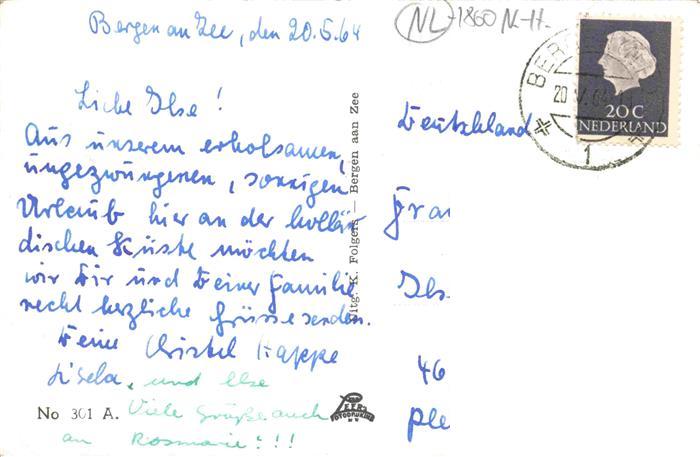 Bergen an Zee, den 20.5.64
NL-1860 N-H-
20 V. 64
20 C
NEDERLAND
Liebe Ilse!
Aus unserem erholsamen,
ungezwungenen, sonnigen
Urlaub hier an der hollän-
dischen Küste möchten
wir Dir und Deiner Familie
recht herzliche Grüsse senden.
Deine Christel Happe
Gisela, und Else
Viele Grüße auch
an Rosmarie!!!
No 301 A.
Uitg. K. Folgers — Bergen aan Zee
Deutschland
Frau
Ils
46